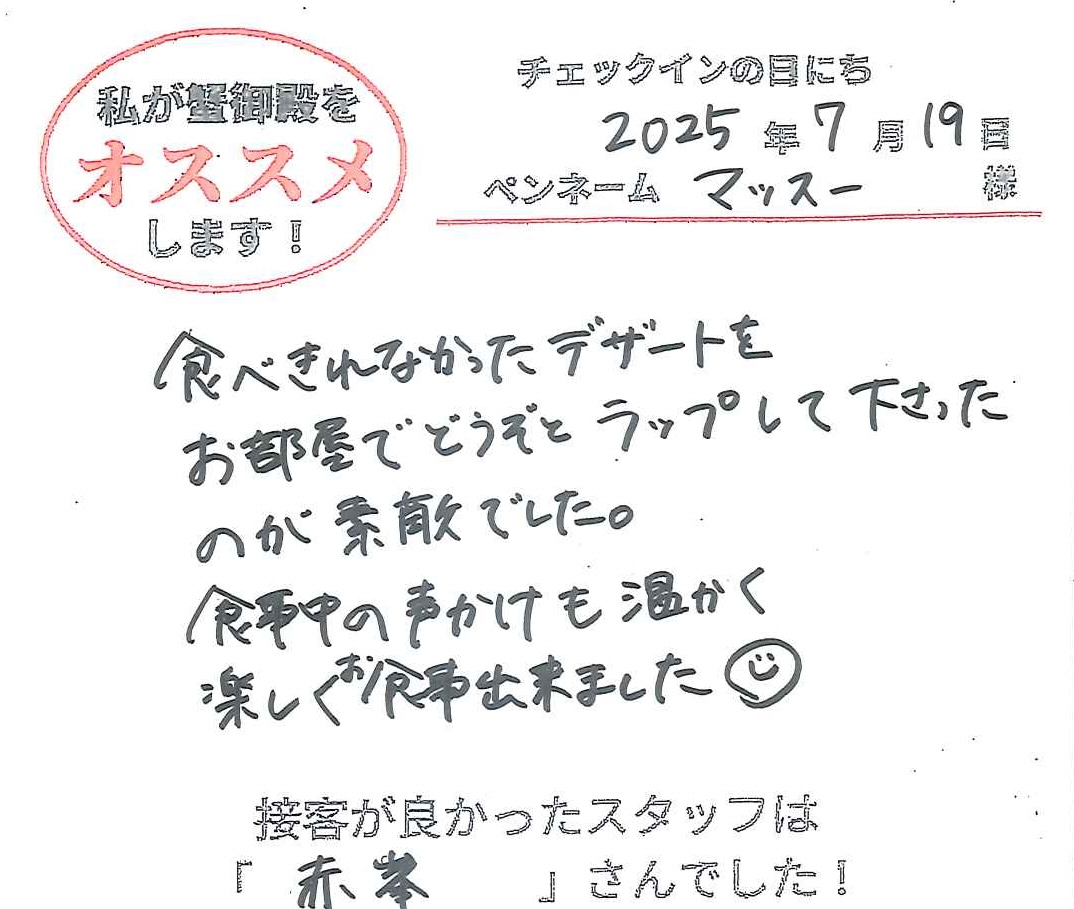 私が蟹御殿を
オススメ
します！
チェックインの日にち
2025年7月19日
ペンネーム マッスー 様
食べきれなかったデザートを
お部屋でどうぞとラップして下さった
のが素敵でした。
食事中の声かけも温かく
楽しくお食事出来ました☺
接客が良かったスタッフは
「赤峯」さんでした！